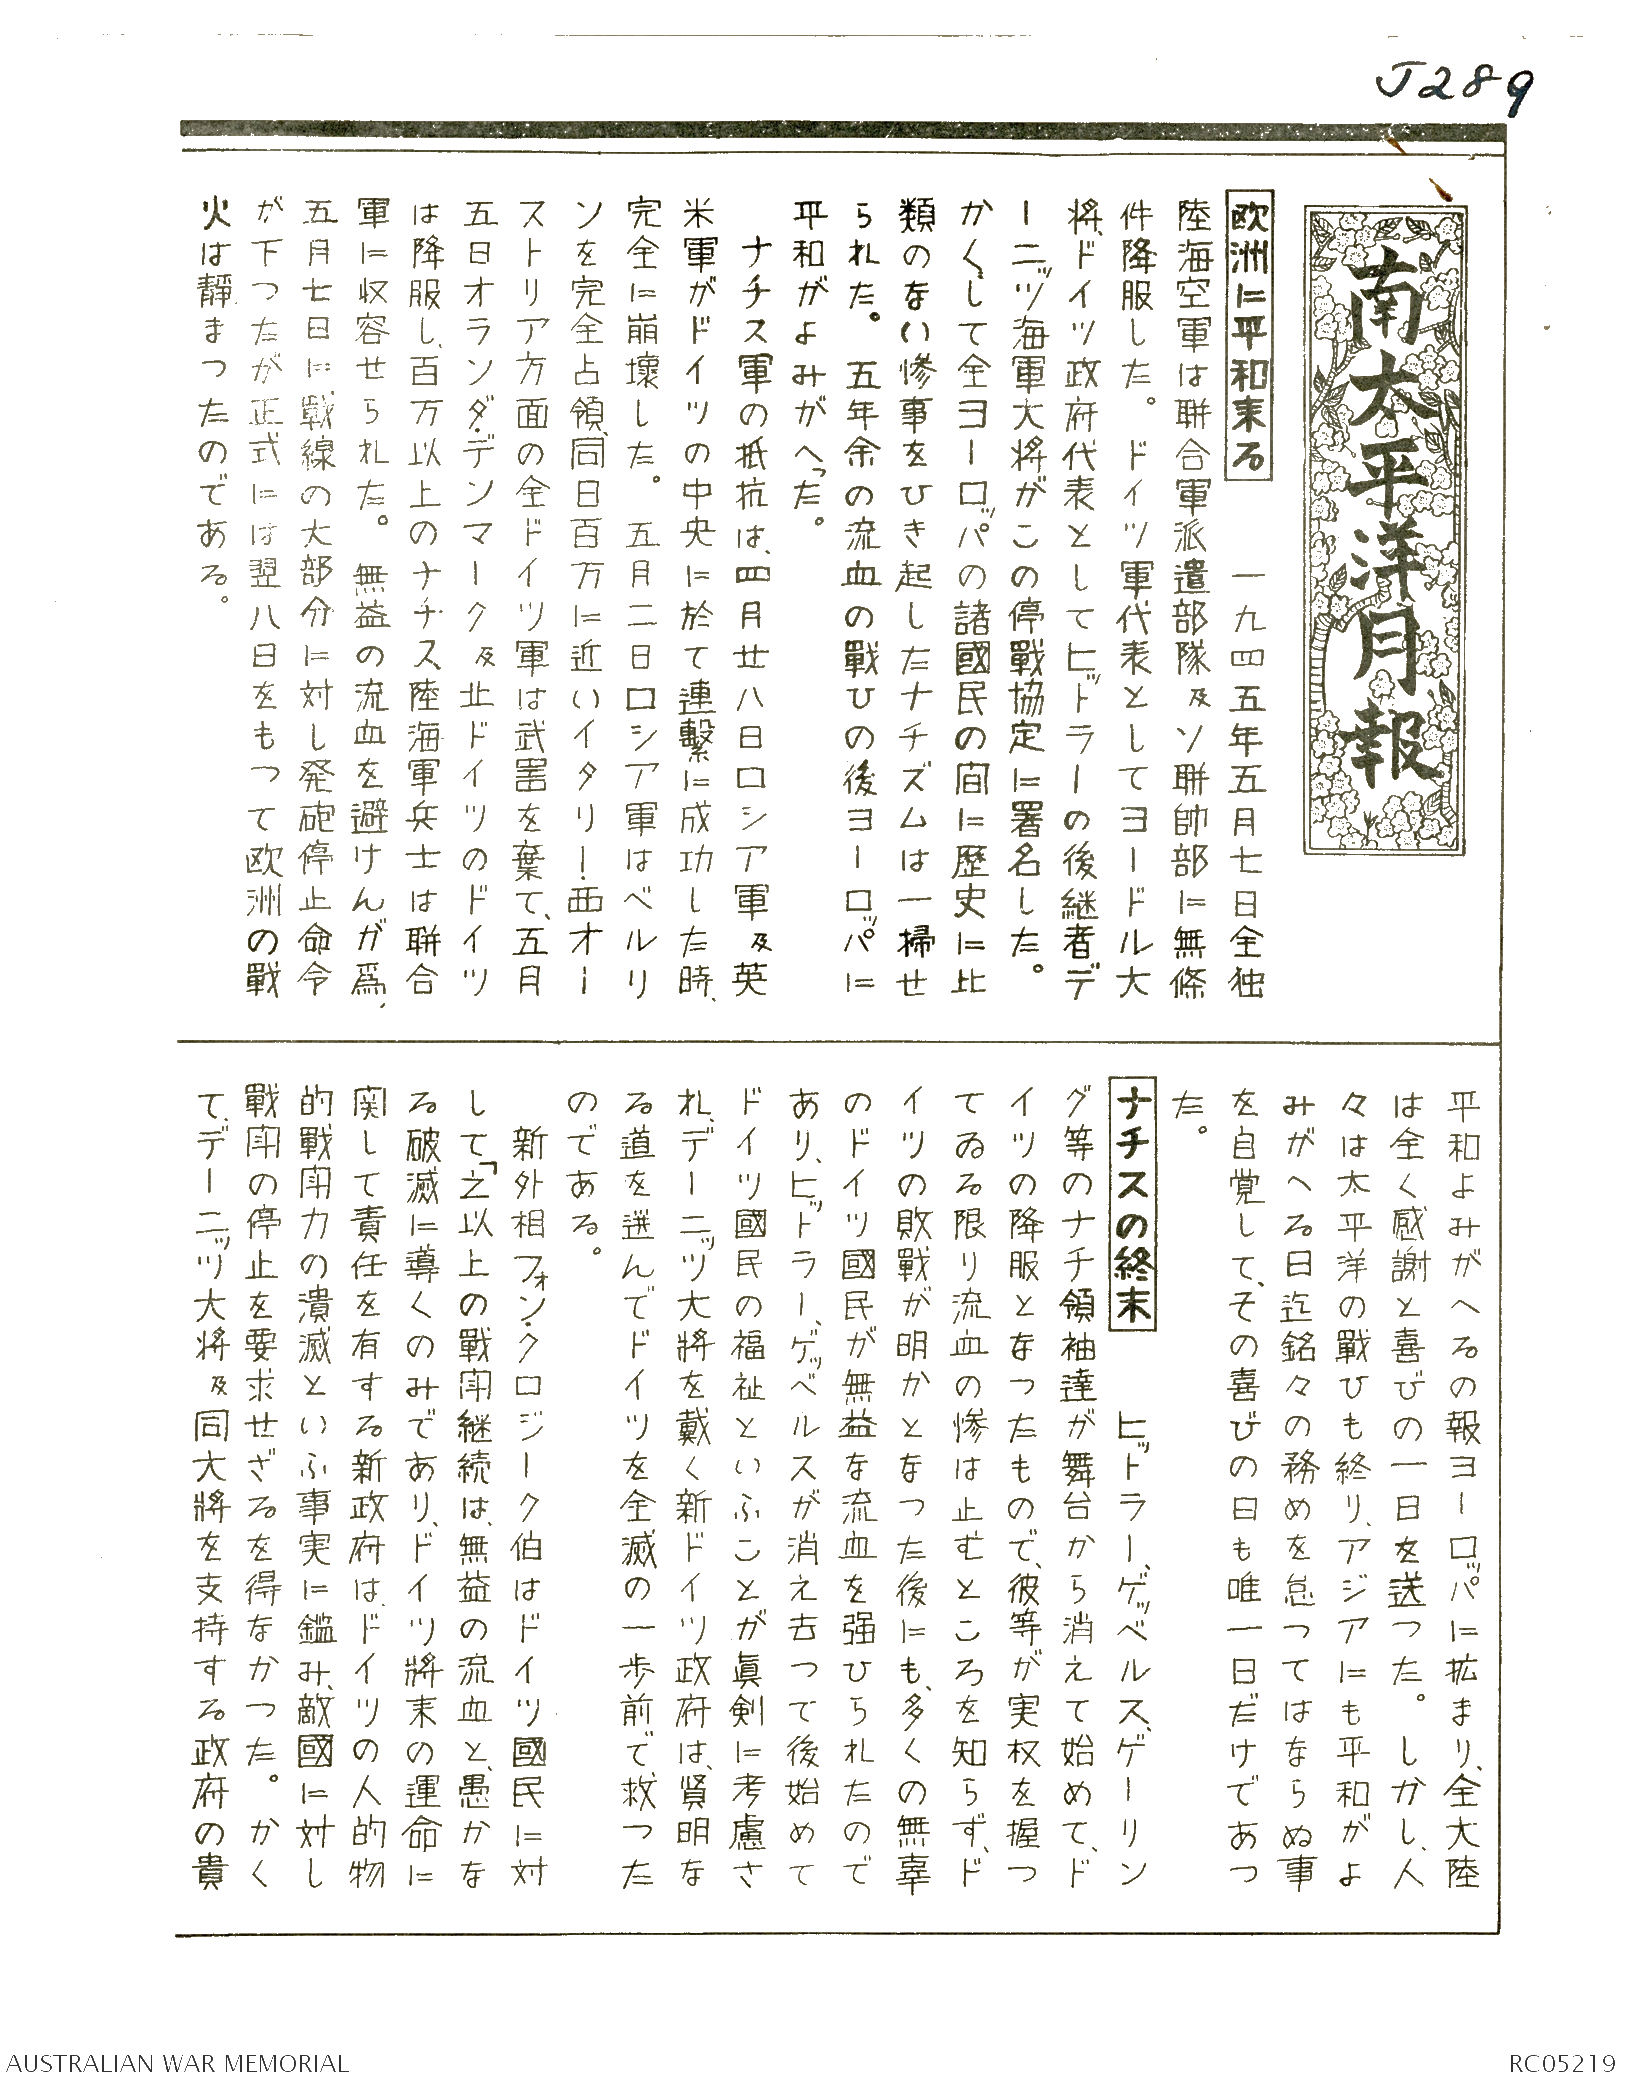 J289
南太平洋月報
欧洲に平和来る　　一九四五年五月七日全独
陸海空軍は聯合軍派遣部隊及ソ聯帥部に無條
件降服した。ドイツ軍代表としてヨードル大
将、ドイツ政府代表としてヒットラーの後継者デ
ーニッツ海軍大将がこの停戰協定に署名した。
かくして全ヨーロッパの諸國民の間に歴史に比
類のない惨事をひき起したナチズムは一掃せ
られた。五年余の流血の戰ひの後ヨーロッパに
平和がよみがへった。
　ナチス軍の抵抗は、四月廿八日ロシア軍及英
米軍がドイツの中央に於て連繫に成功した時、
完全に崩壞した。五月二日ロシア軍はベルリ
ンを完全占領、同日百万に近いイタリー！西オー
ストリア方面の全ドイツ軍は武器を棄て、五月
五日オランダ・デンマーク及北ドイツのドイツ
は降服し、百万以上のナチス陸海軍兵士は聯合
軍に収容せられた。無益の流血を避けんが爲、
五月七日に、戰線の大部分に対し発砲停止命令
が下つたが正式には翌八日をもつて欧洲の戰
火は靜まつたのである。
平和よみがへるの報ヨーロッパに拡まり、全大陸
は全く感謝と喜びの一日を送つた。しかし、人
々は太平洋の戰ひも終り、アジアにも平和がよ
みがへる日迄銘々の務めを怠つてはならぬ事
を自覚して、その喜びの日も唯一日だけであつ
た。
ナチスの終末　　ヒットラー、ゲッベルス、ゲーリン
グ等のナチ領袖達が舞台から消えて始めて、ド
イツの降服となつたもので、彼等が実权を握つ
てゐる限り流血の惨は止むところを知らず、ド
イツの敗戰が明かとなつた後にも、多くの無辜
のドイツ國民が無益な流血を强ひられたので
あり、ヒットラー、ゲッベルスが消え去つて後始めて
ドイツ國民の福祉といふことが眞剣に考慮さ
れ、デーニッツ大將を戴く新ドイツ政府は、賢明な
る道を選んでドイツを全滅の一歩前で、救つた
のである。
　新外相フォン・クロジーク伯はドイツ國民に対
して「之以上の戰闘継続は、無益の流血と、愚かな
る破滅に導くのみであり、ドイツ將来の運命に
関して責任を有する新政府は、ドイツの人的物
的戰闘力の潰滅といふ事実に鑑み、敵國に対し
戰闘の停止を要求せざるを得なかつた。かく
て、デーニッツ大将及同大將を支持する政府の貴
AUSTRALIAN WAR MEMORIAL
RC05219